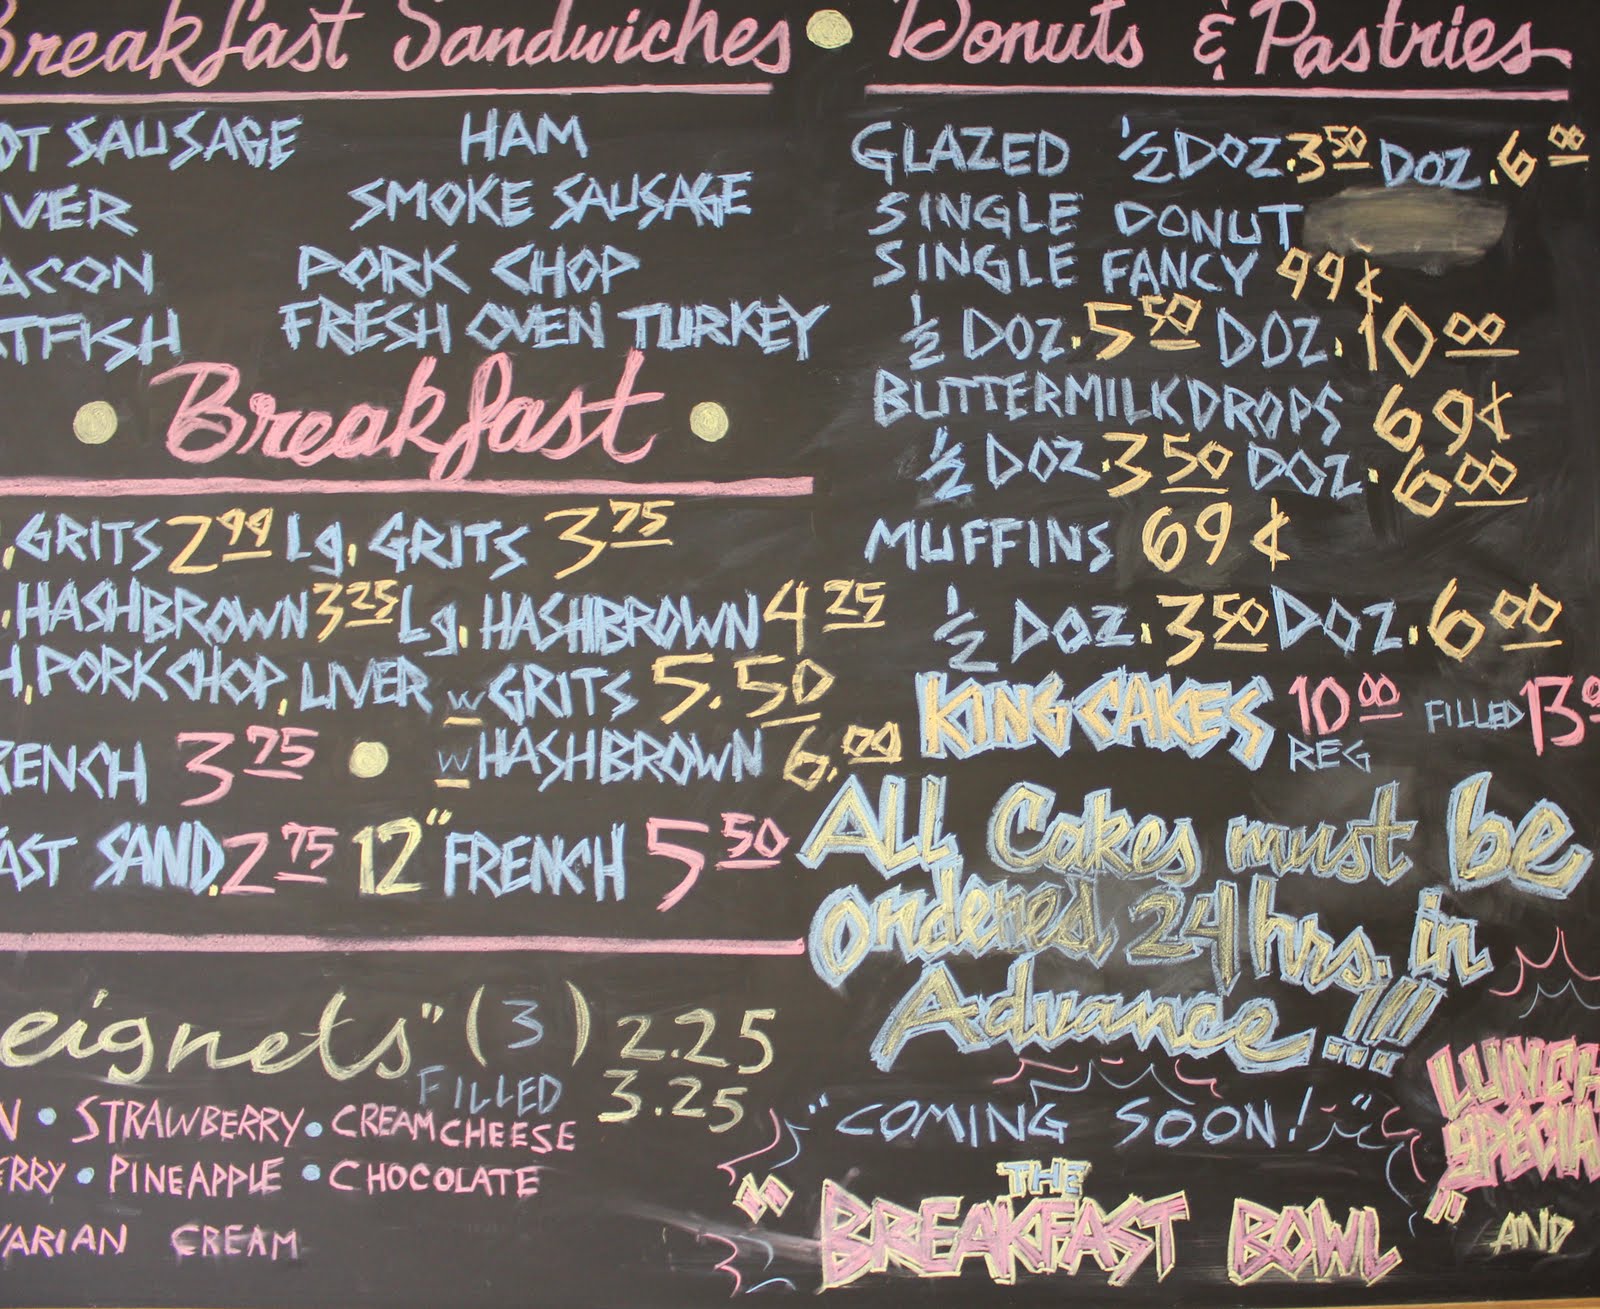 Breakfast Sandwiches
OT SAUSAGE HAM
IVER SMOKE SAUSAGE
ACON PORK CHOP
ATFISH FRESH OVEN TURKEY
Breakfast
. GRITS 2.99 Lg. GRITS 3.75
. HASHBROWN 3.25 Lg. HASHBROWN 4.25
H, PORK CHOP, LIVER w GRITS 5.50
RENCH 3.75 w HASHBROWN 6.00
FAST SAND. 2.75 12" FRENCH 5.50
eignets" (3) 2.25
FILLED 3.25
N • STRAWBERRY • CREAM CHEESE
ERRY • PINEAPPLE • CHOCOLATE
VARIAN CREAM
Donuts & Pastries
GLAZED 1/2 DOZ. 3.50 DOZ. 6.00
SINGLE DONUT
SINGLE FANCY 99¢
1/2 DOZ. 5.50 DOZ. 10.00
BUTTERMILK DROPS 69¢
1/2 DOZ. 3.50 DOZ. 6.00
MUFFINS 69¢
1/2 DOZ. 3.50 DOZ. 6.00
KING CAKES 10.00 REG FILLED 13.0
ALL Cakes must be
ordered 24 hrs. in
Advance!!!
"COMING SOON!"
"THE
BREAKFAST BOWL"
AND
LUNCH
SPECIA